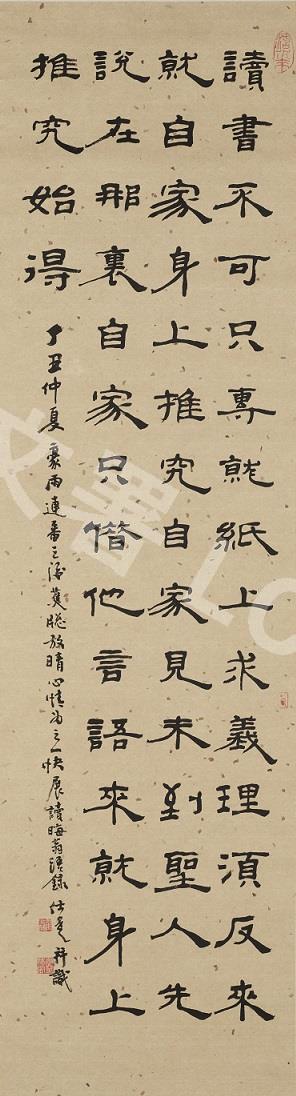 讀書不可只專就紙上求義理須反來
就自家身上推究自家見未到聖人先
說在那裏自家只借他言語來就身上
推究始得
丁丑仲夏豪雨連番之後驟放晴心情為之一快展讀晦翁語錄 并識